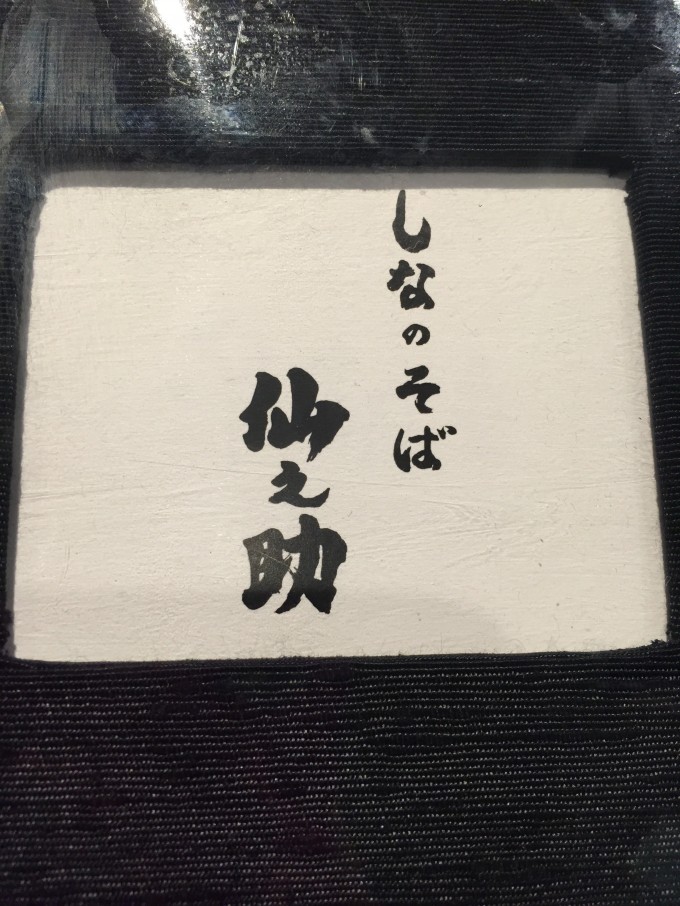 しなのそば
仙之助